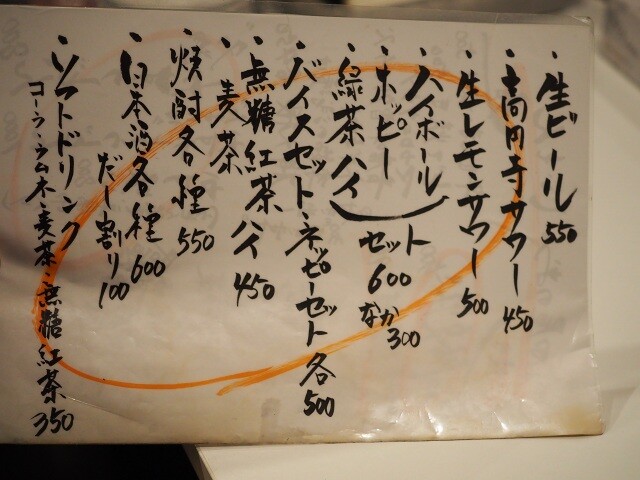 ・生ビール 550
・高円寺サワー 450
・生レモンサワー 500
・ハイボール
・ホッピー セット600 なか300
・緑茶ハイ
・バイスセット・ネッピーセット各500
・無糖紅茶ハイ 450
・麦茶
・焼酎各種 550
・日本酒各種 600
だし割り100
・ソフトドリンク
コーラ・ラムネ・麦茶・無糖紅茶 350